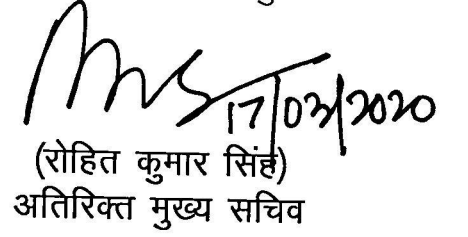 17/03/2020
(रोहित कुमार सिंह)
अतिरिक्त मुख्य सचिव